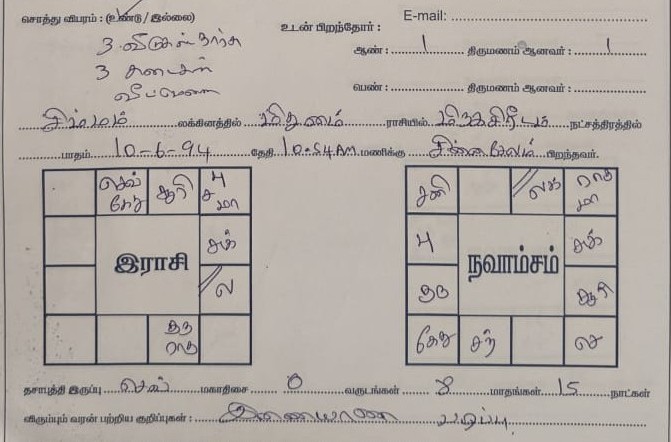 சொத்து விபரம் : (உண்டு / இல்லை)
E-mail:
3 வீடுகள்
உடன் பிறந்தோர் :
ஆண் : 1 திருமணம் ஆனவர் : 1
3 கடைகள்
பெண் : திருமணம் ஆனவர் :
சிம்மம் லக்கினத்தில் மிதுனம் ராசியில் மிருகசிரீடம் நட்சத்திரத்தில்
பாதம் 10-6-94 தேதி 10.54AM மணிக்கு பிறந்தவர்.
செவ் கேது சூரி பு ச மா
சனி லக் ராகு மா
இராசி
நவாம்சம்
பு
ல
குரு
சூரி
குரு ராகு
கேது செ
தசாபுத்தி இருப்பு செவ் மகாதிசை 0 வருடங்கள் 8 மாதங்கள் 15 நாட்கள்
விரும்பும் வரன் பற்றிய குறிப்புகள் : இணையான படிப்பு